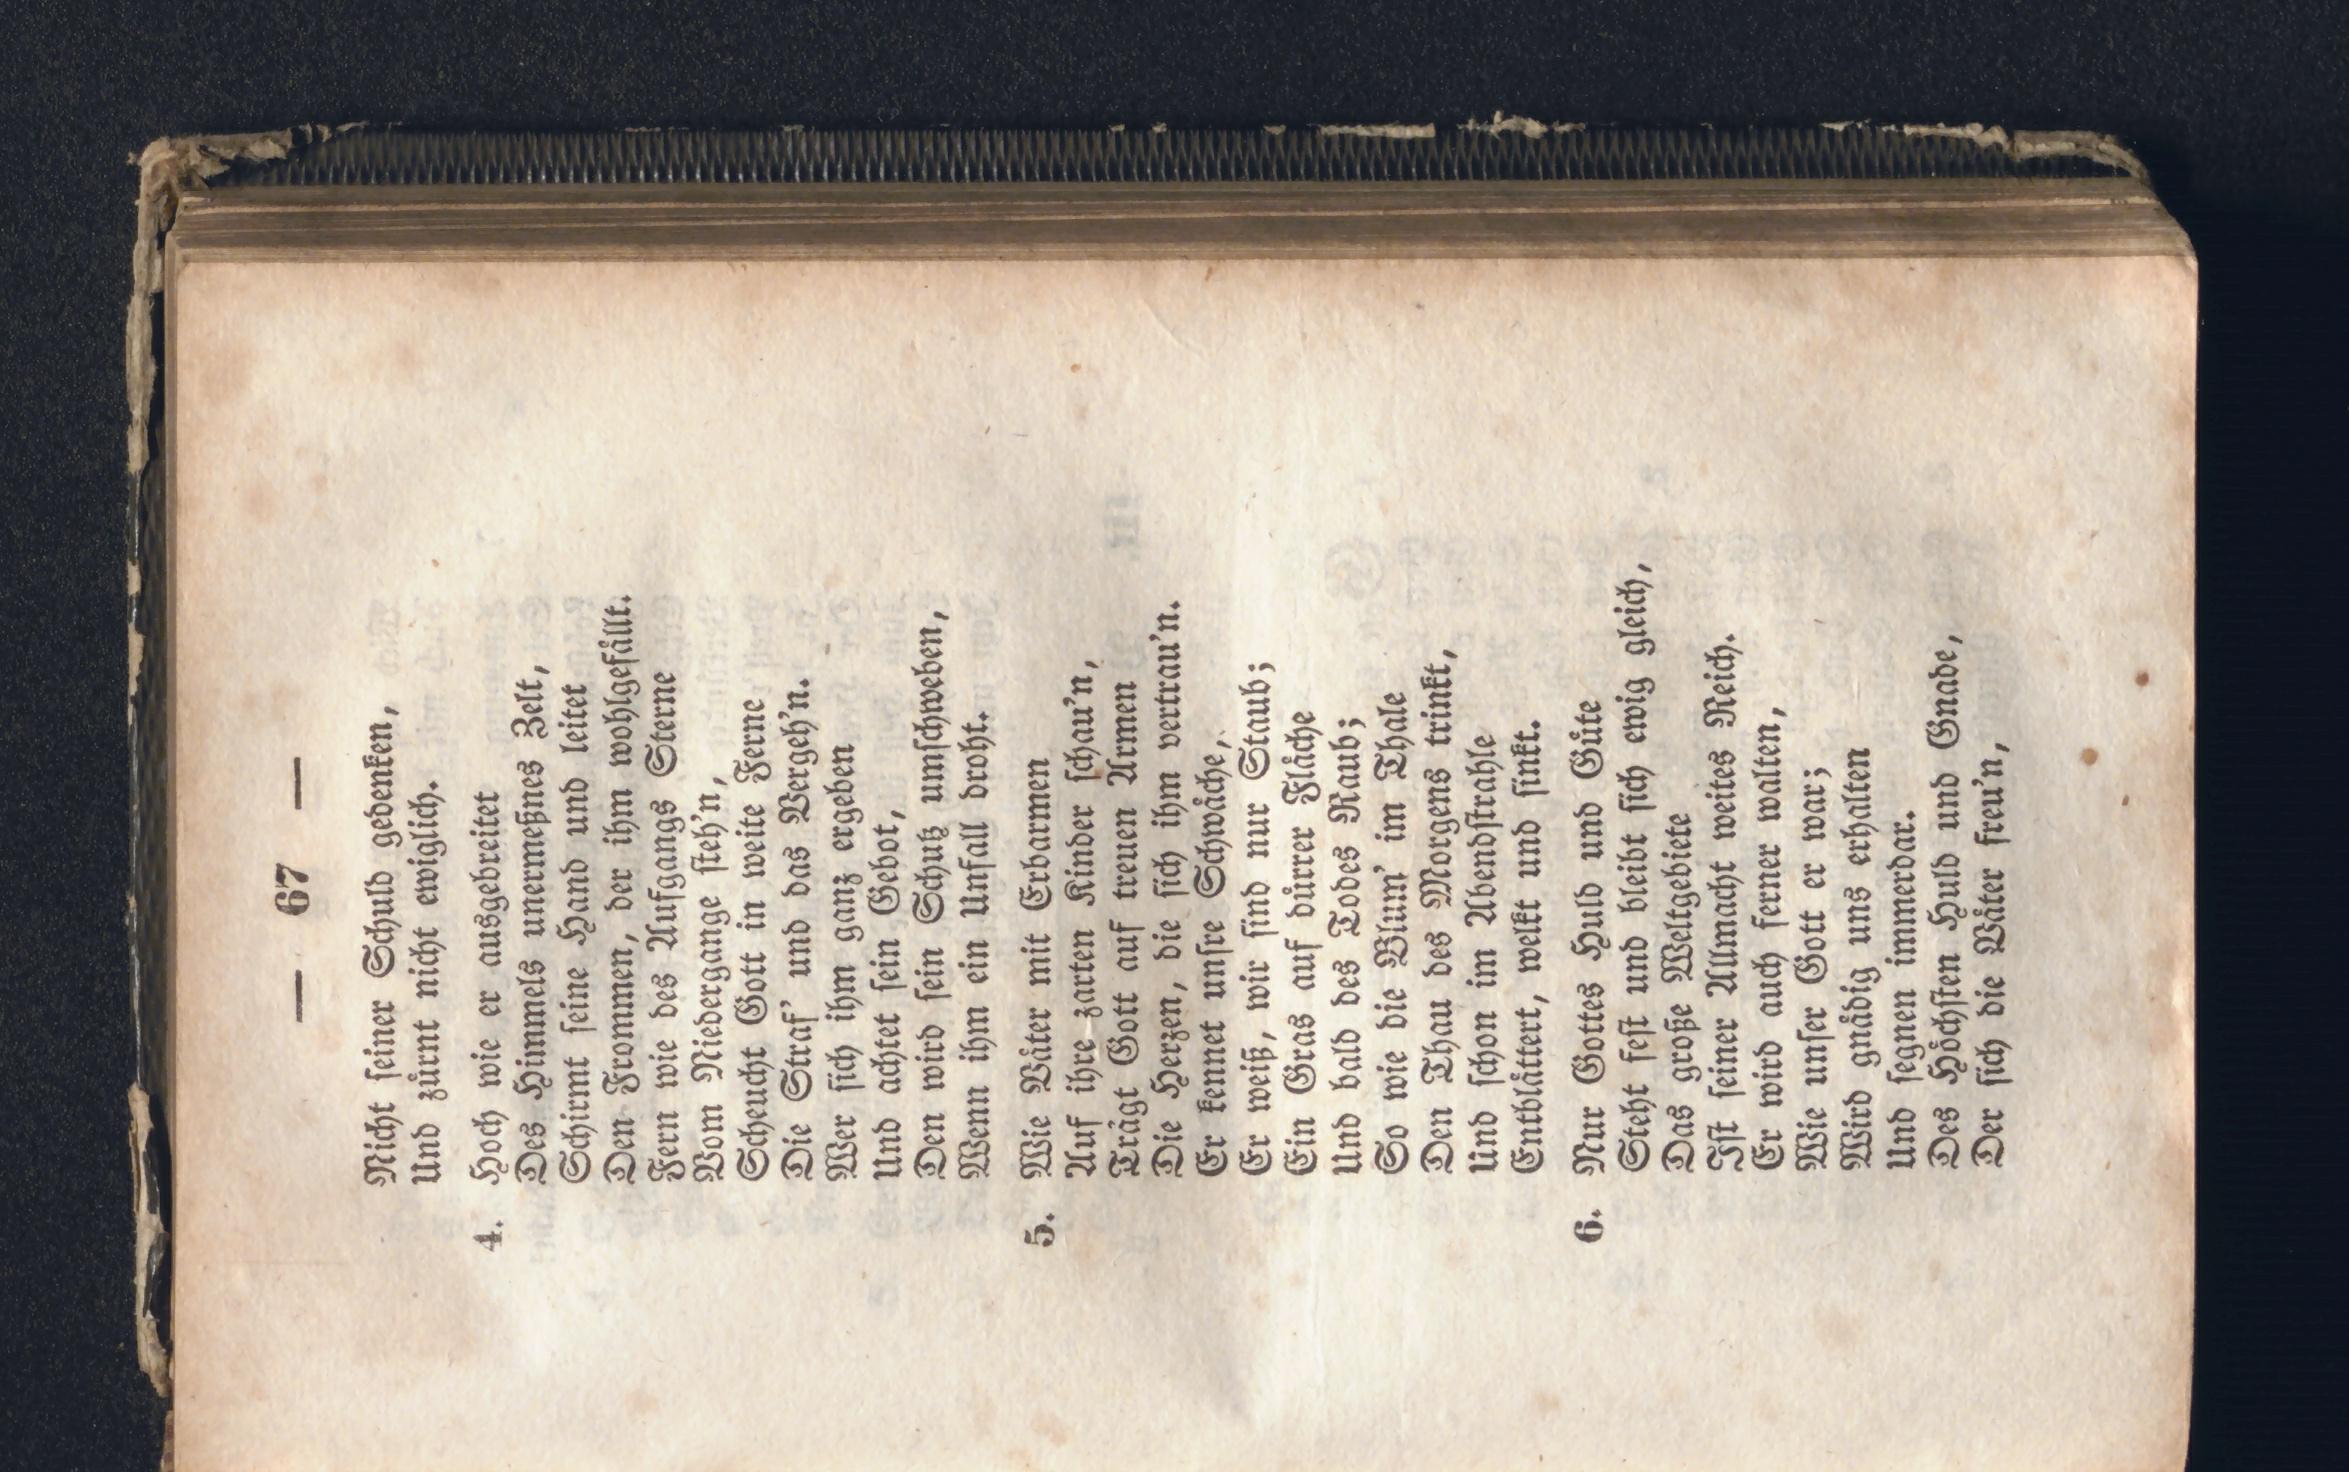 — 67 —
Nicht seiner Schuld gedenken,
Und zürnt nicht ewiglich.
4. Hoch wie er ausgebreitet
Des Himmels unermeßnes Zelt,
Schirmt seine Hand und leitet
Den Frommen, der ihm wohlgefällt.
Fern wie des Aufgangs Sterne
Vom Niedergange steh'n,
Scheucht Gott in weite Ferne
Die Straf' und das Vergeh'n.
Wer sich ihm ganz ergeben
Und achtet sein Gebot,
Den wird sein Schutz umschweben,
Wenn ihm ein Unfall droht.
5. Wie Väter mit Erbarmen
Auf ihre zarten Kinder schau'n,
Trägt Gott auf treuen Armen
Die Herzen, die sich ihm vertrau'n.
Er kennet unsre Schwäche,
Er weiß, wir sind nur Staub;
Ein Gras auf dürrer Fläche
Und bald des Todes Raub;
So wie die Blum' im Thale
Den Thau des Morgens trinkt,
Und schon im Abendstrahle
Entblättert, welkt und sinkt.
6. Nur Gottes Huld und Güte
Steht fest und bleibt sich ewig gleich,
Das große Weltgebiete
Ist seiner Allmacht weites Reich.
Er wird auch ferner walten,
Wie unser Gott er war;
Wird gnädig uns erhalten
Und segnen immerdar.
Des Höchsten Huld und Gnade,
Der sich die Väter freu'n,